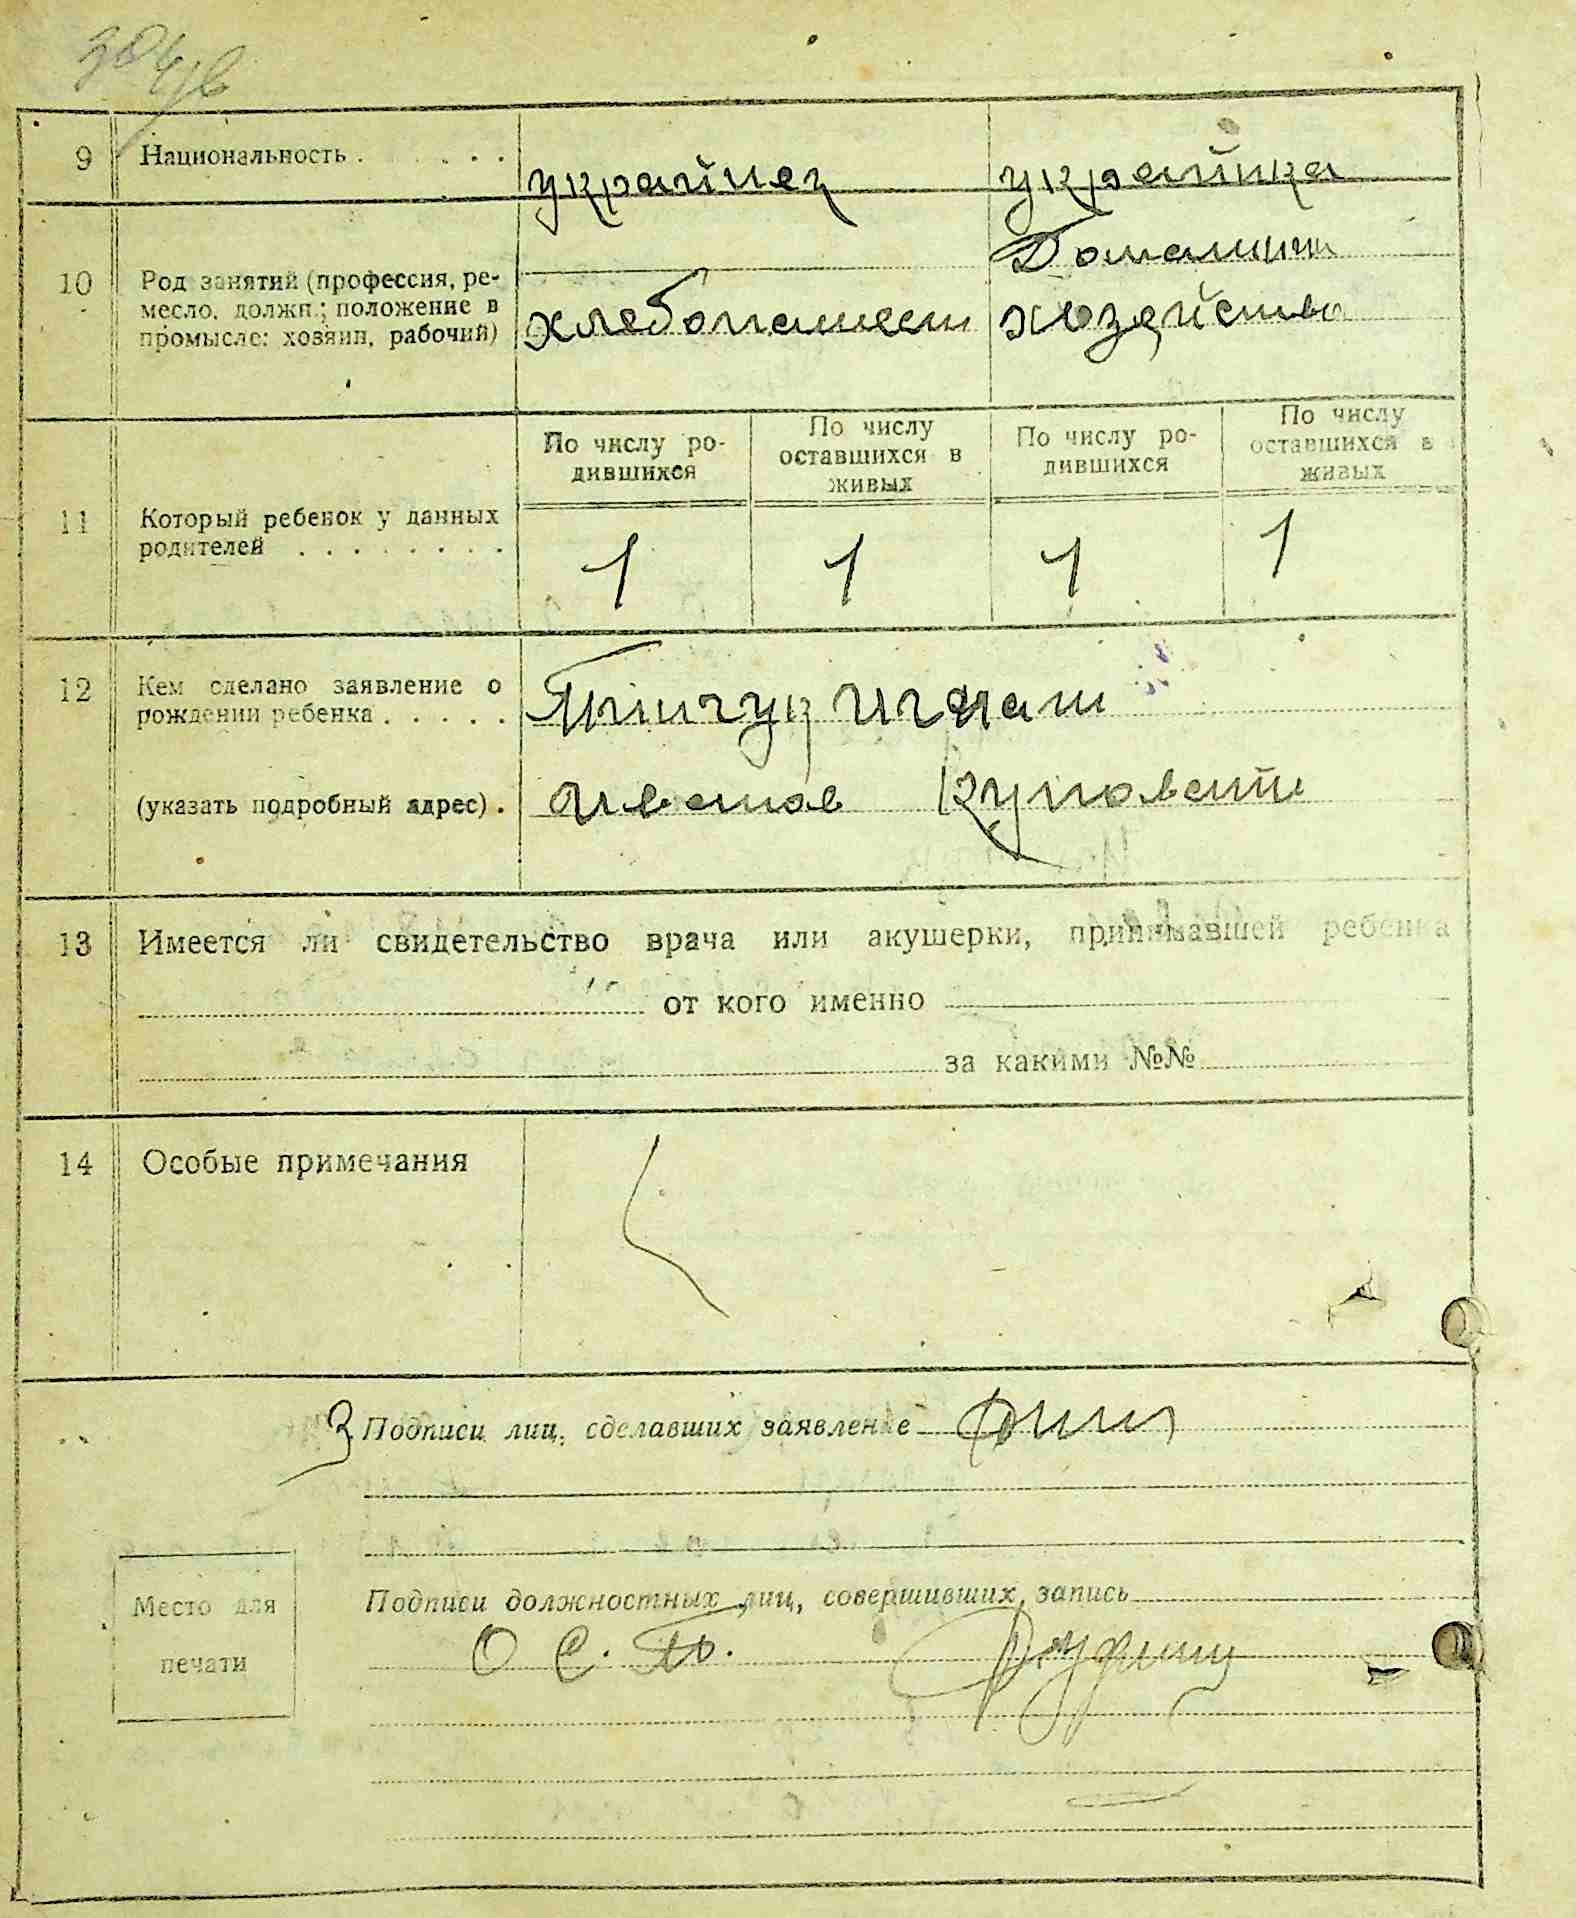 9 Национальность . . . . . украйнец украйнка
10 Род занятий (профессия, ре-
месло, должн.; положение в
промысле: хозяин, рабочий)
хлебопашест
Домашни
хозяйство
11 Который ребенок у данных
родителей . . . . . . . .
По числу ро-
дившихся
По числу
оставшихся в
живых
По числу ро-
дившихся
По числу
оставшихся в
живых
1 1 1 1
12 Кем сделано заявление о
рождении ребенка . . . . .
Игнат
(указать подробный адрес) .
13 Имеется ли свидетельство врача или акушерки, принимавшей ребенка
от кого именно
за какими №№
14 Особые примечания
Подписи лиц, сделавших заявление
Место для
печати
Подписи должностных лиц, совершивших запись